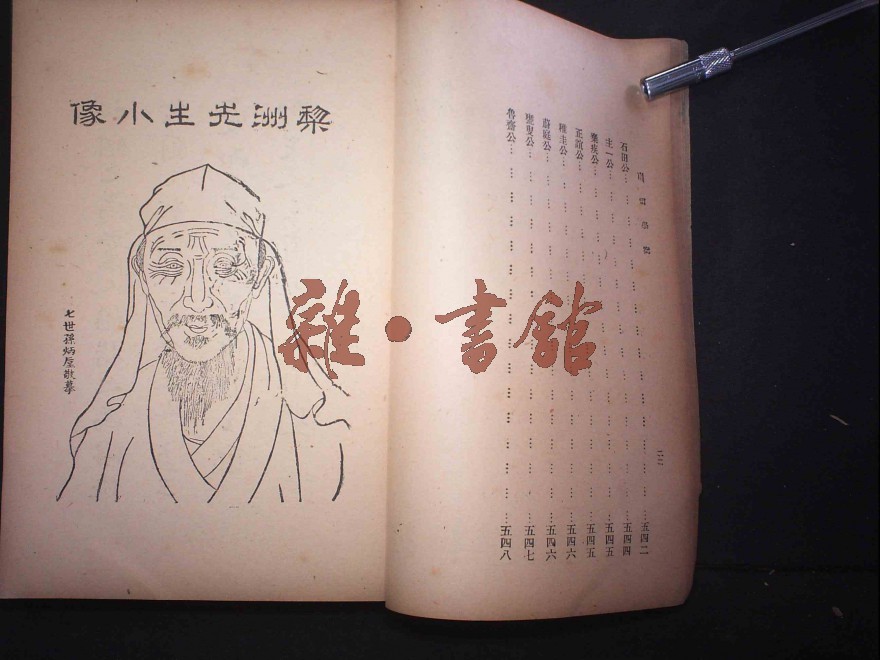 石田公……五四二
圭一公……五四四
棄疾公……五四五
正誼公……五四五
稚圭公……五四六
蔚庭公……五四六
甕叟公……五四七
魯齋公……五四八
黎洲先生小像
七世孫炳垕敬摹
雜·書館